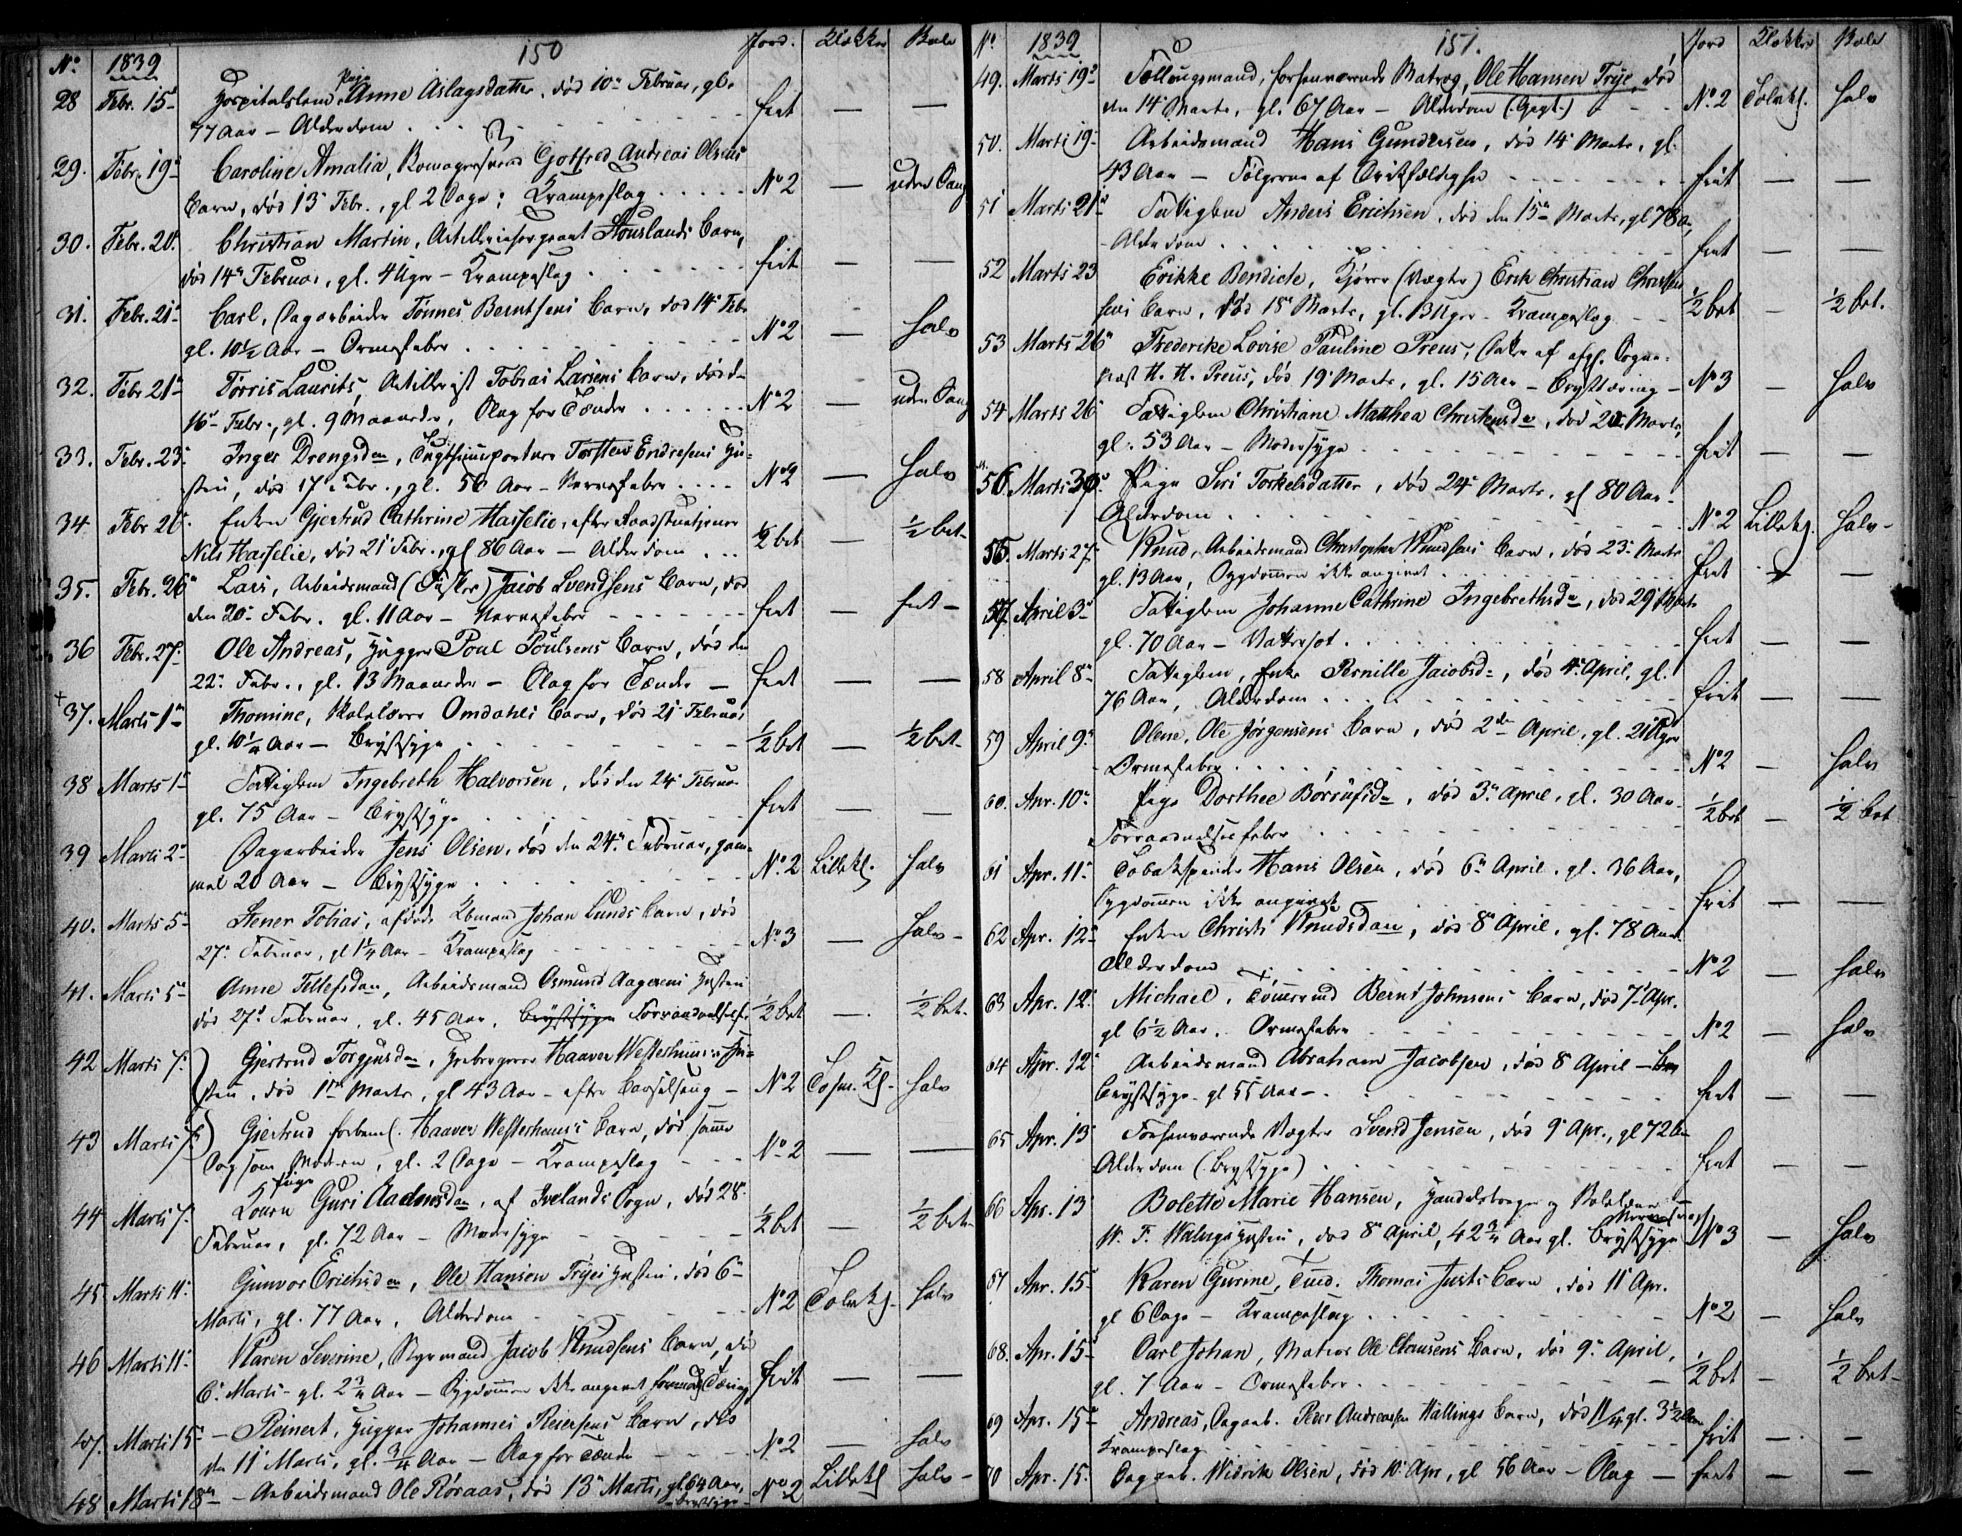 No. 1839 150 Jord. Klokker Bale
28 Febr. 15d Hospitalslem, Pige Anne Aslagsdatter, død 10de Februar, gl.
77 Aar – Alderdom frit — —
29. Febr. 19d Caroline Amalia, Gotfred Andreas Olsens
Barn, død 13 Febr., gl 2 Dage; Krampeslag No 2 — uden Sang
30. Febr. 20d Christian Martin, Artillerisergeant Houslands Barn,
død 14d Februar, gl. 4 Uger – Krampeslag frit — —
31. Febr. 21d Carl, Dagarbeider Tönnes Berntsens Barn, død 14d Febr
gl. 10½ Aar – Ormefeber No 2 — halv
32. Febr 21d Torris Laurits, Artillerist Tobias Larsens Barn, død d.
16d Febr., gl. 9 Maaneder, Slag for Tænder No 2 — uden Sang
33. Febr. 23d Inger Drengsdn, Tugthuusporteur Torsten Endresens Hu-
stru, død 17d Febr., gl. 50 Aar – Nervefeber No 2 — halv
34 Febr 26d Enken Gjertrud Cathrine Hasselie, efter Raadstuetjener
Nils Hasselie, død 21d Febr., gl 86 Aar – Alderdom ½ bet — ½ bet
35. Febr. 26d Lars, Arbeidsmand (Fisker) Jacob Svendsens Barn, død
den 20d Febr. gl. 11 Aar – Nervefeber frit — frit –
36 Febr. 27d Ole Andreas, Hugger Poul Poulsens Barn, død den
22d Febr., gl. 13 Maaneder – Slag for Tænder – frit — —
+ 37. Marts 1d Thomine, Skolelærer Omdahls Barn, død 21d Februar
gl. 10¼ Aar – Brystsyge ½ bet — ½ bet
38 Marts 1d Fattiglem Ingebreth Halvorsen, død den 24d Februar
gl. 75 Aar – Brystsyge frit — —
39 Marts 2d Dagarbeider Jens Olsen, død den 24d Februar, gam-
mel 20 Aar – Brystsyge No. 2 Lillekl. halv
40. Marts 5d Stener Tobias, afdøde Kbmand Johan Lunds Barn, død
27d Februar, gl 1¼ Aar – Krampeslag No 3 — halv –
41. Marts 5d Anne Tellefsdn, Arbeidsmand Osmund Aagesens Hustru
død 27d Februar, gl. 45 Aar, Brystsyge Forraadnelsesf. ½ bet — ½ bet
42 Marts 7d Gjertrud Torgjusdn, Haaver Westerhuus's Hu-
stru, død 1d Marts, gl 43 Aar – efter Barselseng – No 2 Tosm. Kl. halv
43 Marts 7d Gjertrud forbem. Haaver Westerhuus's Barn, død samme
Dag som Moderen, gl. 2 Dage – Krampeslag No 2 — —
44 Marts 7d Konen Pige Guri Aadnesdn, af Ivelands Sogn, død 28d
Februar, gl. 72 Aar – Modersyge ½ bet — ½ bet
45 Marts 11d Gunvor Erichsdn, Ole Hansen Tryes Hustru, død 6d
Marts, gl. 77 Aar, Alderdom No 2 Tolvkl. halv
46 Marts 11d Karen Severine, Styrmand Jacob Knudsens Barn, død
6d Marts – gl. 2¾ Aar – Sygdommen ikke angivet Tæring frit — —
47. Marts 15 Reinert, Hugger Johannes Reiersens Barn, død
den 11d Marts, gl. ¾ Aar – Slag for Tænder No 2 — halv
48 Marts 18d – Arbeidsmand Ole Röraas, død 13d Marts, gl. 64 Aar, Brystsyge No 2 Lillekl halv –
No. 1839 151. Jord Klokker Bale
49. Marts 19d forhenværende Matros, Ole Hansen Trye, død
den 14 Marts, gl. 67 Aar – Alderdom (Gigt.) No. 2 Tolvkl. halv
50. Marts 19d Arbeidsmand Hans Gundersen, død 14d Marts, gl.
43 Aar – Følgerne af frit — —
51 Marts 21d Fattiglem Anders Erichsen, død den 15d Marts, gl 78 Aar,
– Alderdom frit — —
52 Marts 23 Erikke Bendicte, (Vægter) Erik Christian Christen-
sens Barn, død 18d Marts, gl. 13 Uger – Krampeslag ½ bet — ½ bet.
53 Marts 26d Frederikke Lovise Pauline Preus, Datter af afg. Sogne-
præst H. H. Preus, død 19d Marts, gl. 15 Aar – Brysttæring – No 3 — halv
54 Marts 26d Fattiglem Christiane Matthea Christensdn, død 20 Marts,
gl. 53 Aar – Modersyge frit — —
56. Marts 30d Pige Siri Torkelsdatter, død 24d Marts, gl 80 Aar –
Alderdom No 2 Lillekl. halv –
55. Marts 27d Knud, Arbeidsmand Christopher Knudsens Barn, død 23d Marts
gl. 13 Aar, Sygdommen ikke angivet frit — —
57. April 3d Fattiglem Johanne Cathrine Ingebrethsdn, død 29 Marts
gl. 70 Aar – Vattersot frit — —
58 April 8d Fattiglem, Enke Pernille Jacobsd., død 4d April, gl.
76 Aar, Alderdom frit — —
59 April 9d Olene, Ole Jørgensens Barn, død 2den April, gl. 21 Uger
Ormefeber No 2 — halv
60. Apr. 10d Pige Dorthee Börrufsdn, død 3d April, gl. 30 Aar –
Forraadnelsesfeber ½ bet — ½ bet
61 Apr. 11d Tobakspinder Hans Olsen, død 6d April, gl. 36 Aar,
Sygdommen ikke angivet frit — —
62 Apr. 12d Enken Christi Knudsdan, død 8d April, gl. 78 Aar
Alderdom No 2 — halv
63 Apr. 12d Michael, Tömmermd Bernt Johnsens Barn, død 7d Apr.
gl 6½ Aar. Ormefeber No 2 — halv
64 Apr. 12d Arbeidsmand Abraham Jacobsen, død 8 April –
Brystsyge – gl 55 Aar – frit — —
65 Apr. 13d Forhenværende Vægter Svend Jensen, død 9d Apr., gl 72 Aar
Alderdom (Brystsyge) frit — —
66 Apr. 13 Bolette Marie Hansen, Handelsborger og
W. F. Hustru, død 8d April, 42¾ Aar gl. Brystsyge No 3 — halv
67 Apr. 15d Karen Gurine, Tmd. Thomas Justs Barn, død 11d Apr.
gl 6 Dage – Krampeslag No 2 — halv
68. Apr. 15d Carl Johan, Matros Ole Clausens Barn, død 9d April,
gl. 7 Aar – Ormefeber ½ bet — ½ bet –
69 Apr. 15d Andreas, Dagarb. Peder Andreassen Wallings Barn, død 11/4 gl. 3½ Aar
Krampeslag frit — —
70 Apr. 15. Dagarb. Olsen, død 10d Apr, gl 56 Aar – Slag – frit — —